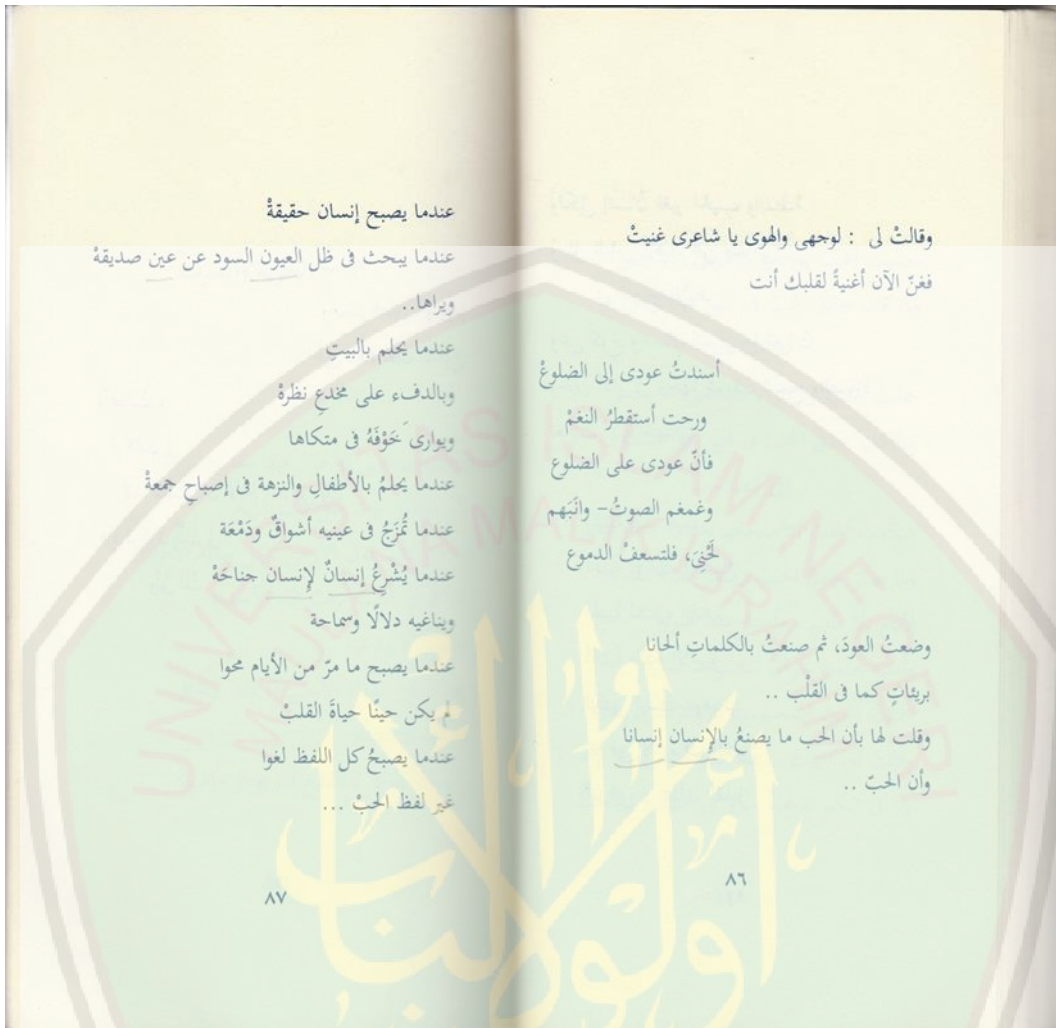 وقالتْ لى : لوجهى والهوى يا شاعرى غنيتْ
فغنّ الآن أغنيةً لقلبك أنت
أسندتُ عودى إلى الضلوعْ
ورحت أستقطرُ النغمْ
فأنّ عودى على الضلوع
وغمغم الصوتُ- وانَبَهم
لَحْنِىَ، فلتسعفْ الدموع
وضعتُ العودَ، ثم صنعتُ بالكلماتِ ألحانا
بريئاتٍ كما فى القلْب ..
وقلت لها بأن الحب ما يصنعُ بالإِنسان إنسانا
وأن الحبّ ..
٨٦
عندما يصبح إنسان حقيقةْ
عندما يبحث فى ظل العيون السود عن عين صديقةْ
ويراها..
عندما يحلم بالبيتِ
وبالدفء على مخدعِ نظرهْ
ويوارى خَوْفَهُ فى متكاها
عندما يحلمُ بالأطفالِ والنزهة فى إصباحِ جمعةْ
عندما تُمزَجُ فى عينيه أشواقٌ ودَمْعَة
عندما يُشْرِعُ إنسانٌ لإِنسان جناحَهْ
ويناغيه دلالًا وسماحة
عندما يصبح ما مرّ من الأيام محوا
لم يكن حينًا حياةَ القلبْ
عندما يصبحُ كل اللفظ لغوا
غير لفظ الحبْ ...
٨٧
UNIVERSITAS ISLAM NEGERI
MAULANA MALIK IBRAHIM
أولوا الألباب